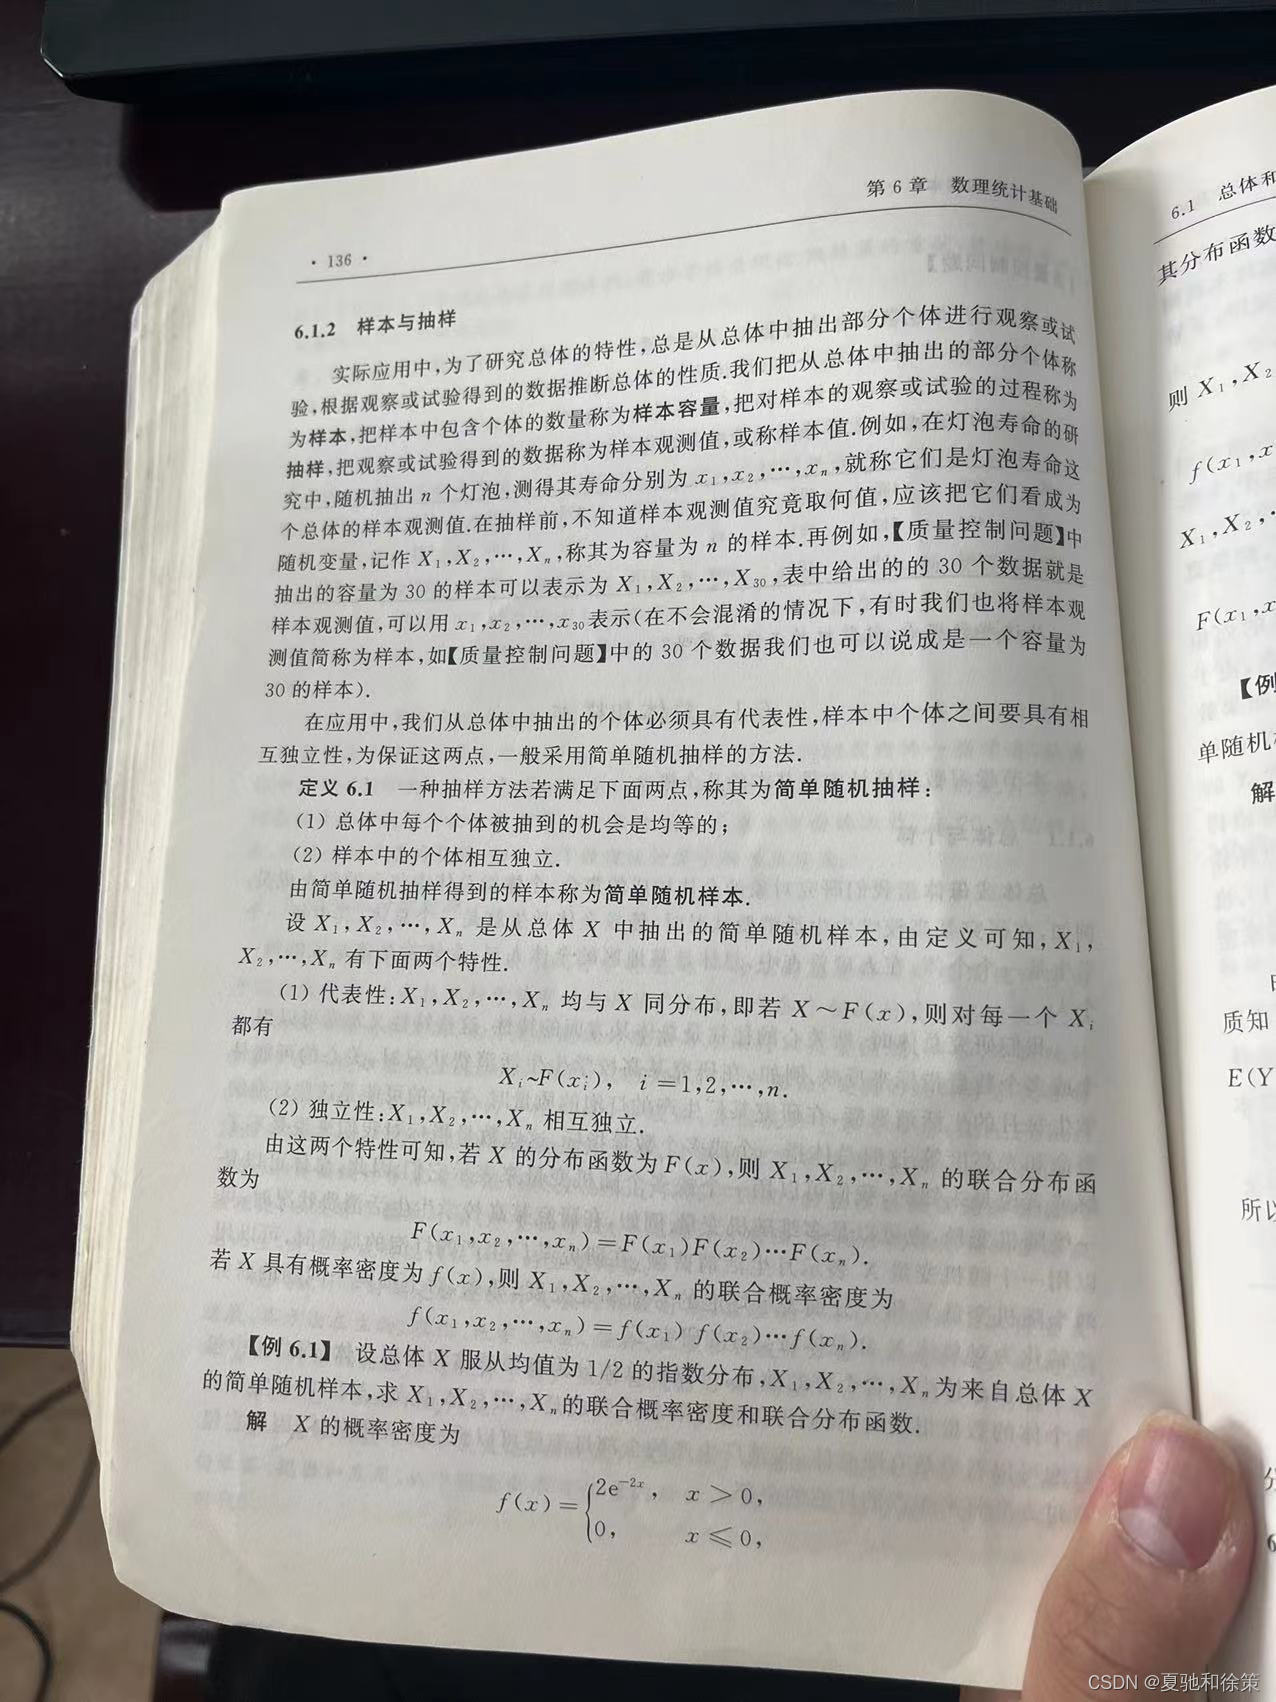 第 6 章 数理统计基础
· 136 ·
6.1.2 样本与抽样
实际应用中,为了研究总体的特性,总是从总体中抽出部分个体进行观察或试
验,根据观察或试验得到的数据推断总体的性质.我们把从总体中抽出的部分个体称
为样本,把样本中包含个体的数量称为样本容量,把对样本的观察或试验的过程称为
抽样,把观察或试验得到的数据称为样本观测值,或称样本值.例如,在灯泡寿命的研
究中,随机抽出 n 个灯泡,测得其寿命分别为 x₁,x₂,⋯,xₙ,就称它们是灯泡寿命这
个总体的样本观测值.在抽样前,不知道样本观测值究竟取何值,应该把它们看成为
随机变量,记作 X₁,X₂,⋯,Xₙ,称其为容量为 n 的样本.再例如,【质量控制问题】中
抽出的容量为 30 的样本可以表示为 X₁,X₂,⋯,X₃₀,表中给出的的 30 个数据就是
样本观测值,可以用 x₁,x₂,⋯,x₃₀表示(在不会混淆的情况下,有时我们也将样本观
测值简称为样本,如【质量控制问题】中的 30 个数据我们也可以说成是一个容量为
30 的样本).
在应用中,我们从总体中抽出的个体必须具有代表性,样本中个体之间要具有相
互独立性,为保证这两点,一般采用简单随机抽样的方法.
定义 6.1 一种抽样方法若满足下面两点,称其为简单随机抽样:
(1) 总体中每个个体被抽到的机会是均等的;
(2) 样本中的个体相互独立.
由简单随机抽样得到的样本称为简单随机样本.
设 X₁,X₂,⋯,Xₙ 是从总体 X 中抽出的简单随机样本,由定义可知,X₁,
X₂,⋯,Xₙ 有下面两个特性.
(1) 代表性:X₁,X₂,⋯,Xₙ 均与 X 同分布,即若 X～F(x),则对每一个 Xᵢ
都有
Xᵢ~F(xᵢ), i=1,2,⋯,n.
(2) 独立性:X₁,X₂,⋯,Xₙ 相互独立.
由这两个特性可知,若 X 的分布函数为F(x),则 X₁,X₂,⋯,Xₙ 的联合分布函
数为
F(x₁,x₂,⋯,xₙ)=F(x₁)F(x₂)⋯F(xₙ).
若 X 具有概率密度为 f(x),则 X₁,X₂,⋯,Xₙ 的联合概率密度为
f(x₁,x₂,⋯,xₙ)=f(x₁) f(x₂)⋯f(xₙ).
【例 6.1】 设总体 X 服从均值为 1/2 的指数分布,X₁,X₂,⋯,Xₙ为来自总体 X
的简单随机样本,求 X₁,X₂,⋯,Xₙ的联合概率密度和联合分布函数.
解 X 的概率密度为
f(x)={2e⁻²ˣ, x>0,
0, x≤0,
6.1 总体和
其分布函数
则 X₁,X₂
f(x₁,x
X₁,X₂,
F(x₁,x
【例
单随机
解
质知
E(Y
所以
CSDN @夏驰和徐策